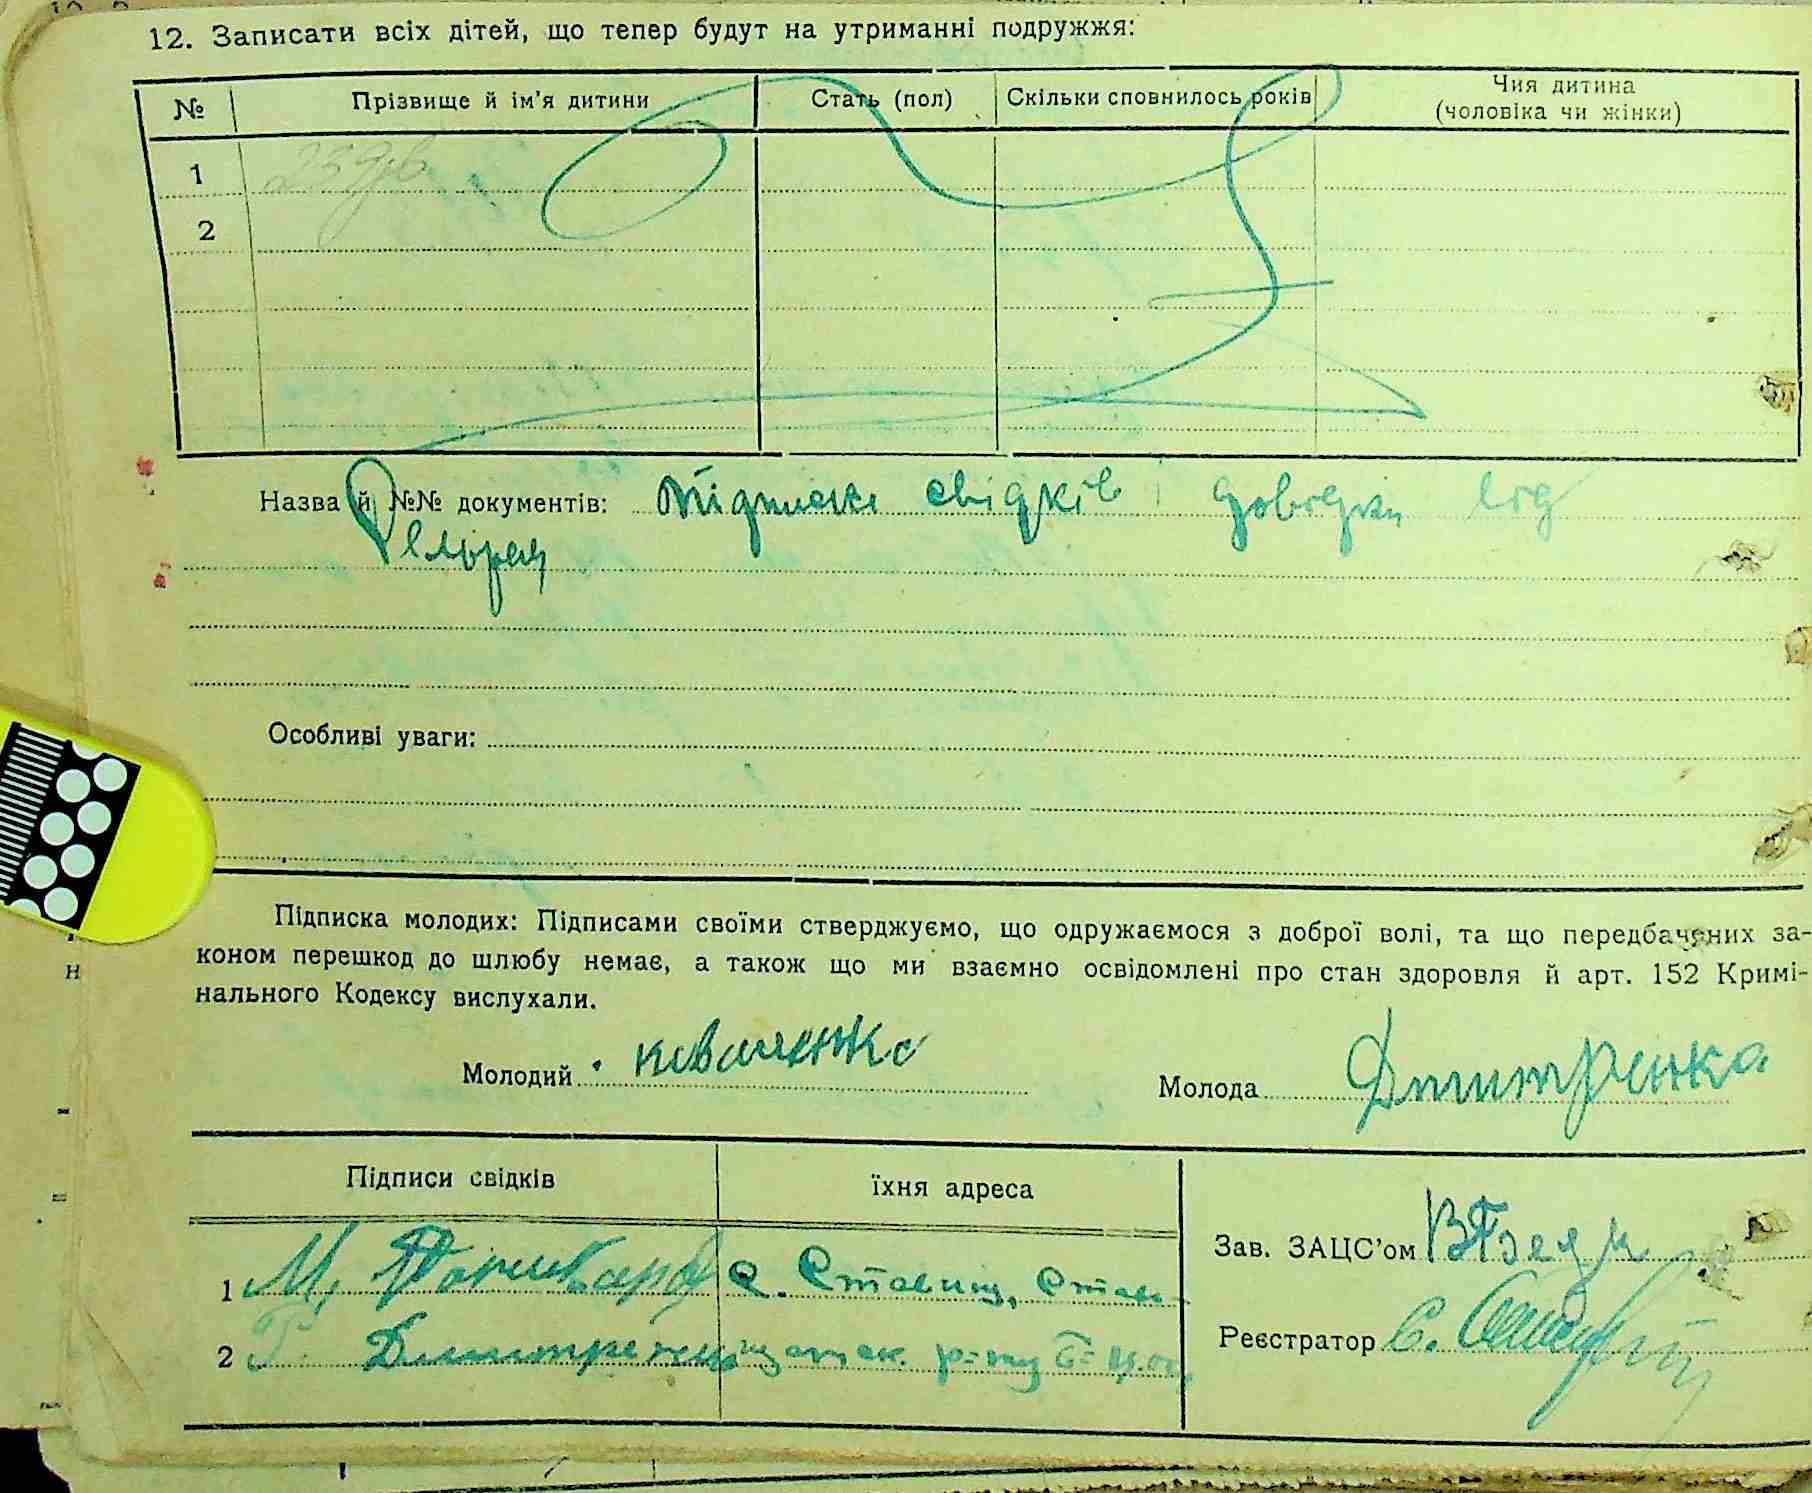 12. Записати всіх дітей, що тепер будут на утриманні подружжя:
№ Прізвище й ім'я дитини Стать (пол) Скільки сповнилось років Чия дитина
(чоловіка чи жінки)
1
2
Назва й №№ документів: Підписки свідків і довідки від
Особливі уваги:
Підписка молодих: Підписами своїми стверджуємо, що одружаємося з доброї волі, та що передбачених за-
коном перешкод до шлюбу немає, а також що ми взаємно освідомлені про стан здоровля й арт. 152 Кримі-
нального Кодексу вислухали.
Молодий Молода Дмитренка
Підписи свідків їхня адреса
Зав. ЗАЦС'ом
1 М. с. Ставищ, Став-
2 Г. Дмитренко
Реєстратор С.